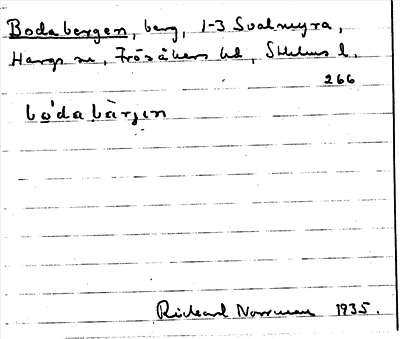 Bodabergen, berg, 1-3 Svalmyra,
Hargs sn, Frösåkers hd, Sthlms l.
266
bo̯'da bàrjen
Rickard Norrman 1935.